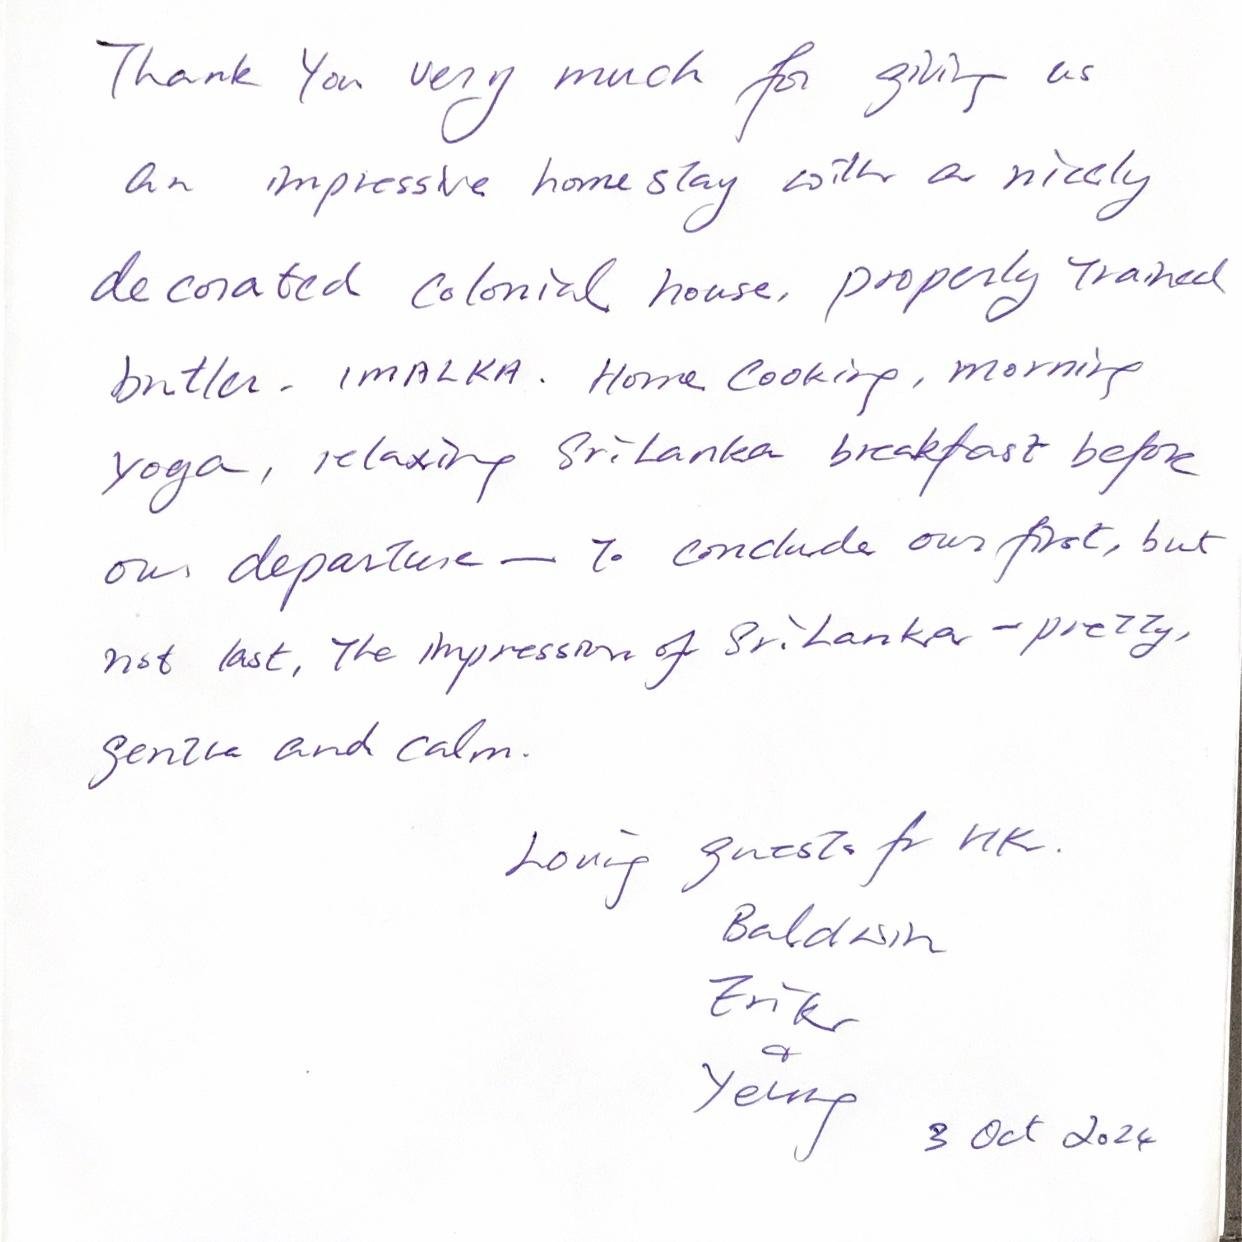 Thank You very much for giving us
an impressive homestay with a nicely
decorated Colonial house, properly trained
butler - IMALKA. Home Cooking, morning
yoga, relaxing Sri Lanka breakfast before
our departure — to conclude our first, but
not last, the impression of Sri Lanka - pretty,
gentle and calm.
Loving guests fr HK.
Baldwin
Erik
&
Yeung
3 Oct 2024